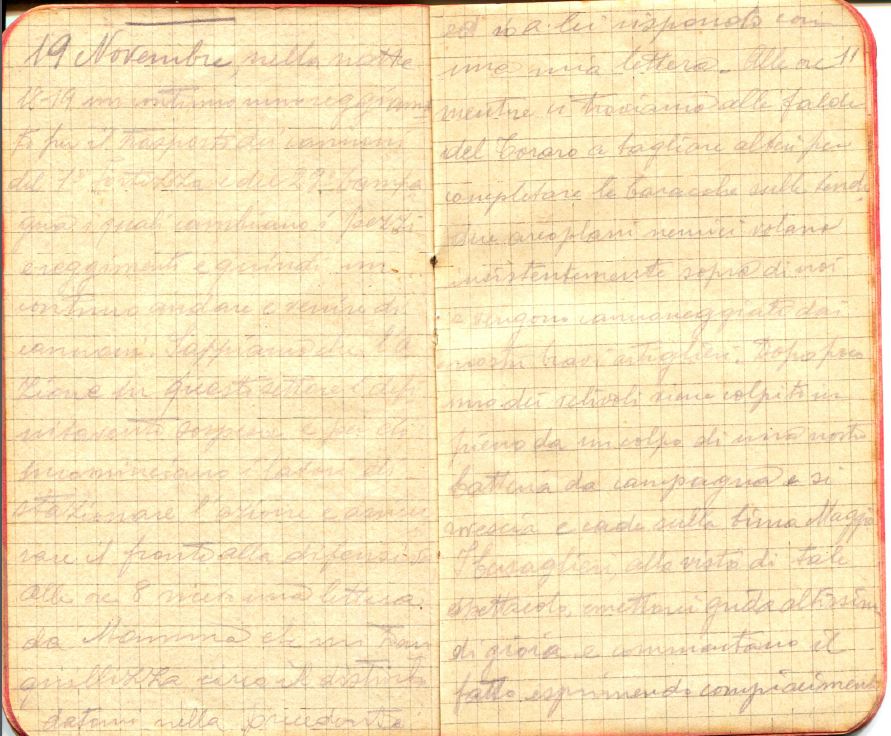 19 Novembre, nella notte
18-19 un continuo
to per il trasporto dei cannoni
del 7° Fortezza e del 29° Campa
gna i quali cambiano i pezzi
e quindi un
continuo andare e venire di
cannoni. Sappiamo che l'a
zione in questo settore è defi
sospesa e per ciò
incominciano i lavori di
stazionare l'azione e assicu
rare il fronte alla difensiva
Alle ore 8 ricevo una lettera
da Mamma che mi tran
quillizza circa il
datomi nella precedente
ed io a lei rispondo con
una mia lettera. Alle ore 11
mentre ci troviamo alle falde
del Coraro a tagliare alberi per
completare le baracche sulle tende
due areoplani nemici volano
insistentemente sopra di noi
e vengono cannoneggiati dai
nostri bravi artiglieri. Dopo poco
uno dei velivoli viene colpito in
pieno da un colpo di una nostra
batteria da campagna e si
rovescia e cade sulla Cima Maggio
I bersaglieri, alla vista di tale
spettacolo, emettono grida altissime
di gioia e commentano il
fatto esprimendo compiacimento